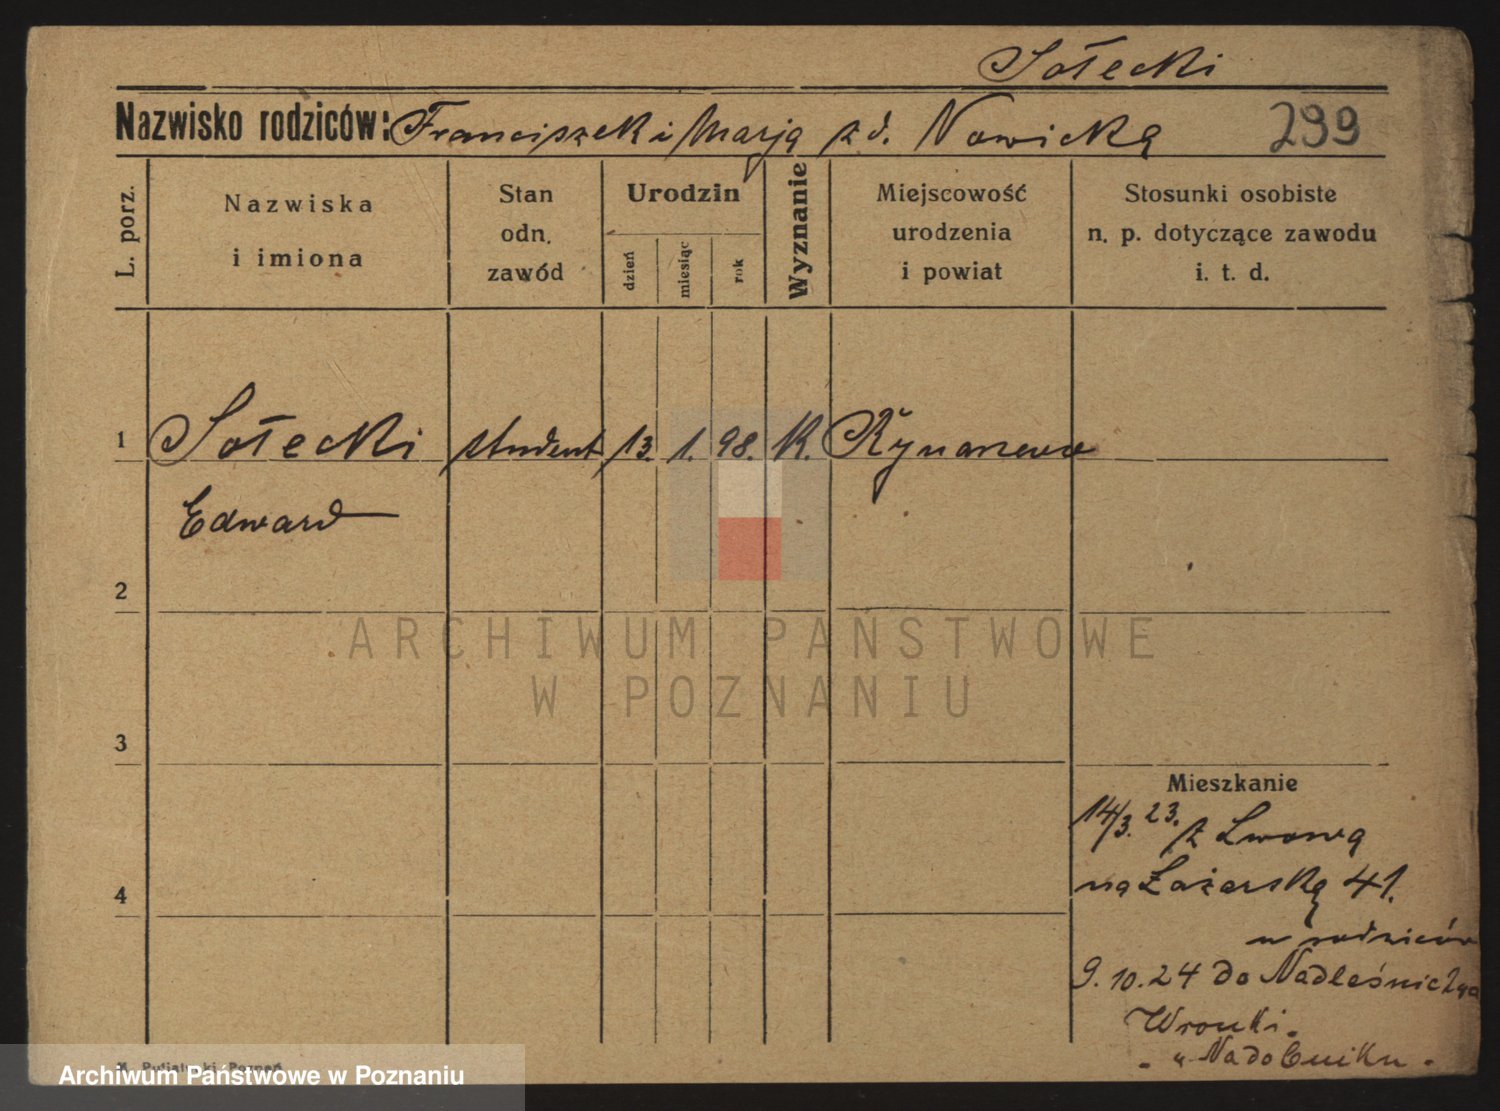 Sołecki
Nazwisko rodziców: Franciszek i Marja z d. Nowicka 299
L. porz.
Nazwiska
i imiona
Stan
odn.
zawód
Urodzin
dzień
miesiąc
rok
Wyznanie
Miejscowość
urodzenia
i powiat
Stosunki osobiste
n. p. dotyczące zawodu
i. t. d.
1 Sołecki student 13. 1. 98. K. Rynarzewo
Edward
2
ARCHIWUM PAŃSTWOWE
W POZNANIU
3
Mieszkanie
14/3. 23. z Lwowa
4 na Łazarską 41.
u rodziców
9.10.24 do Nadleśnictwa
Wronki.
Archiwum Państwowe w Poznaniu